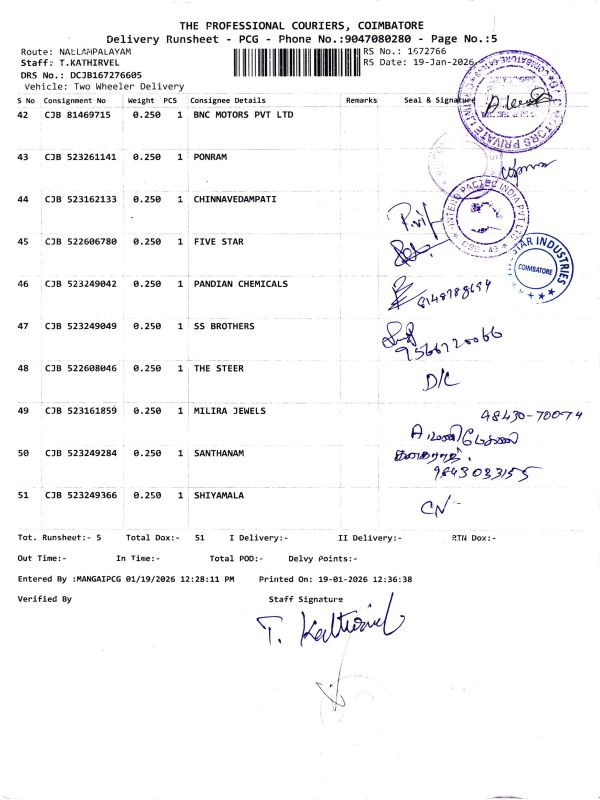 THE PROFESSIONAL COURIERS, COIMBATORE
Delivery Runsheet - PCG - Phone No.:9047080280 - Page No.:5
Route: NALLAMPALAYAM
RS No.: 1672766
Staff: T.KATHIRVEL
RS Date: 19-Jan-2026
DRS No.: DCJB167276605
Vehicle: Two Wheeler Delivery
S No Consignment No Weight PCS Consignee Details Remarks Seal & Signature
42 CJB 81469715 0.250 1 BNC MOTORS PVT LTD
43 CJB 523261141 0.250 1 PONRAM
44 CJB 523162133 0.250 1 CHINNAVEDAMPATI
INDIA PVT LTD
45 CJB 522606780 0.250 1 FIVE STAR
STAR INDUSTRIES
COIMBATORE
46 CJB 523249042 0.250 1 PANDIAN CHEMICALS
8148788694
47 CJB 523249049 0.250 1 SS BROTHERS
9566720066
48 CJB 522608046 0.250 1 THE STEER
D/C
49 CJB 523161859 0.250 1 MILIRA JEWELS
48430-70074
50 CJB 523249284 0.250 1 SANTHANAM
9843033155
51 CJB 523249366 0.250 1 SHIYAMALA
CN
Tot. Runsheet:- 5 Total Dox:- 51 I Delivery:- II Delivery:- RTN Dox:-
Out Time:- In Time:- Total POD:- Delvy Points:-
Entered By :MANGAIPCG 01/19/2026 12:28:11 PM Printed On: 19-01-2026 12:36:38
Verified By Staff Signature
T. Kathirvel